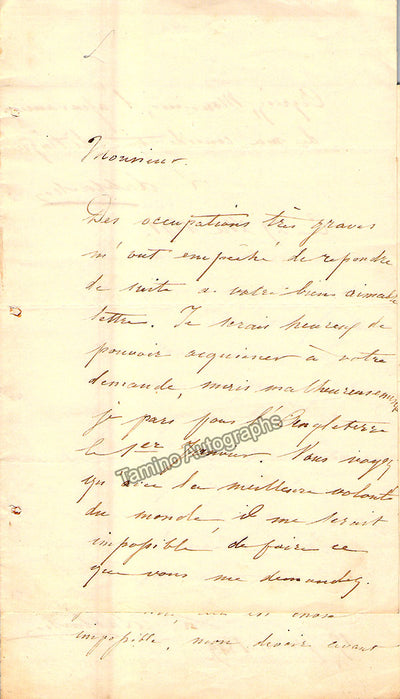 Monsieur.
Des occupations très graves
m'ont empêché de repondre
de suite a votre bien aimable
lettre. Je serais heureux de
pouvoir acquiescer à votre
demande, mais malheureusement
je pars pour l'Angleterre
le 1er Janvier. Vous voyez
qu'avec la meilleure volonté
du monde, il me serait
impossible de faire ce
que vous me demandez.
impossible, mon devoir avant
Tamino Autographs